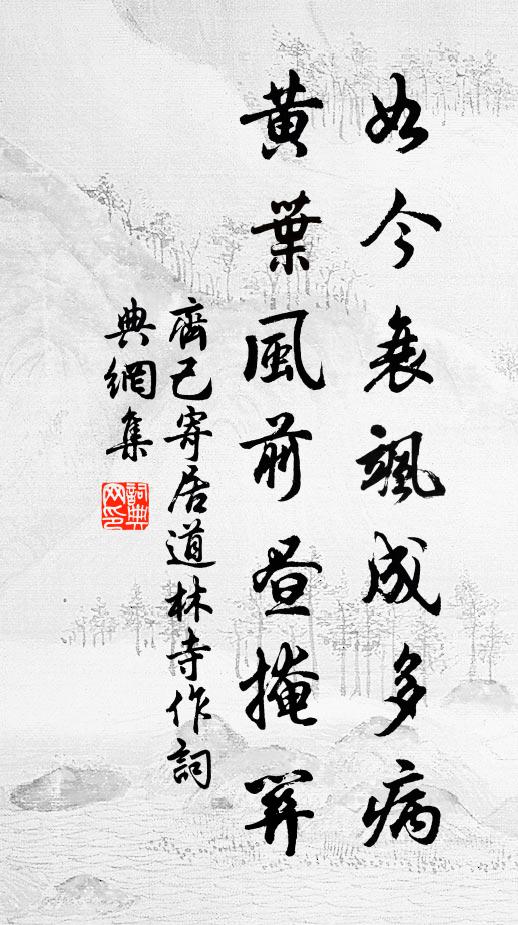 如今衰颯成多病
黃葉風前晝掩關
齊己寄居道林寺作詞
典網集
詞典
网印